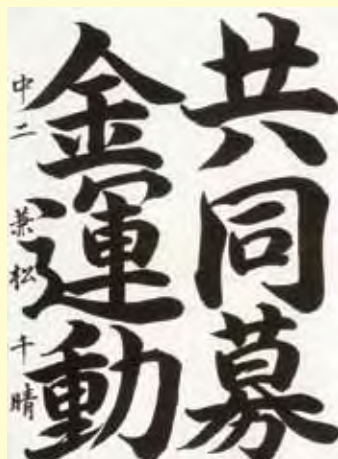 共同募
金運動
中二 兼松千晴